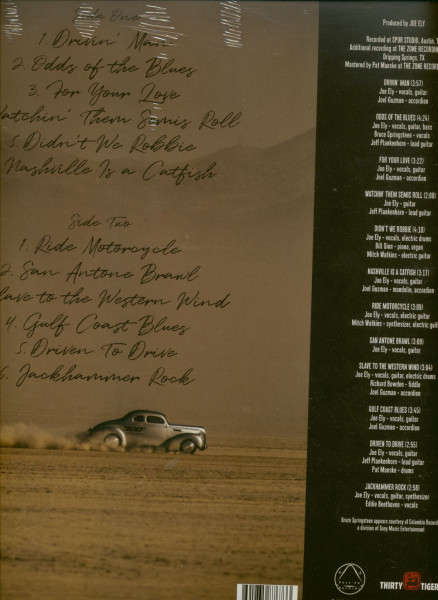 Side One
1. Drivin' Man
2. Odds of the Blues
3. For Your Love
Watchin' Them Semis Roll
5. Didn't We Robbie
Nashville Is a Catfish
Side Two
1. Ride Motorcycle
2. San Antone Brawl
Slave to the Western Wind
4. Gulf Coast Blues
5. Driven To Drive
6. Jackhammer Rock
Produced by JOE ELY
Recorded at SPUR STUDIO, Austin, T
Additional recording at THE ZONE RECOR
Dripping Springs, TX
Mastered by Pat Manske at THE ZONE RECOR
DRIVIN' MAN (3:57)
Joe Ely - vocals, guitar
Joel Guzman - accordion
ODDS OF THE BLUES (4:24)
Joe Ely - vocals, guitar, bass
Bruce Springsteen - vocals
Jeff Plankenhorn - lead guitar
FOR YOUR LOVE (3:22)
Joe Ely - vocals, guitar
Joel Guzman - accordion
WATCHIN' THEM SEMIS ROLL (2:08)
Joe Ely - guitar
Jeff Plankenhorn - lead guitar
DIDN'T WE ROBBIE (4:18)
Joe Ely - vocals, electric drums
Bill Ginn - piano, organ
Mitch Watkins - electric guitar
NASHVILLE IS A CATFISH (3:37)
Joe Ely - vocals, guitar
Joel Guzman - mandolin, accordion
RIDE MOTORCYCLE (3:00)
Joe Ely - vocals, electric guitar
Mitch Watkins - synthesizer, electric guit
SAN ANTONE BRAWL (3:09)
Joe Ely - vocals, guitar
SLAVE TO THE WESTERN WIND (3:04)
Joe Ely - vocals, guitar, electric drums
Richard Bowden - fiddle
Joel Guzman - accordion
GULF COAST BLUES (3:45)
Joe Ely - vocals, guitar
Joel Guzman - accordion
DRIVEN TO DRIVE (2:55)
Joe Ely - vocals, guitar
Jeff Plankenhorn - lead guitar
Pat Manske - drums
JACKHAMMER ROCK (2:56)
Joe Ely - vocals, guitar, synthesizer
Eddie Beethoven - vocals
Bruce Springsteen appears courtesy of Columbia Record
a division of Sony Music Entertainment
THIRTY TIGER